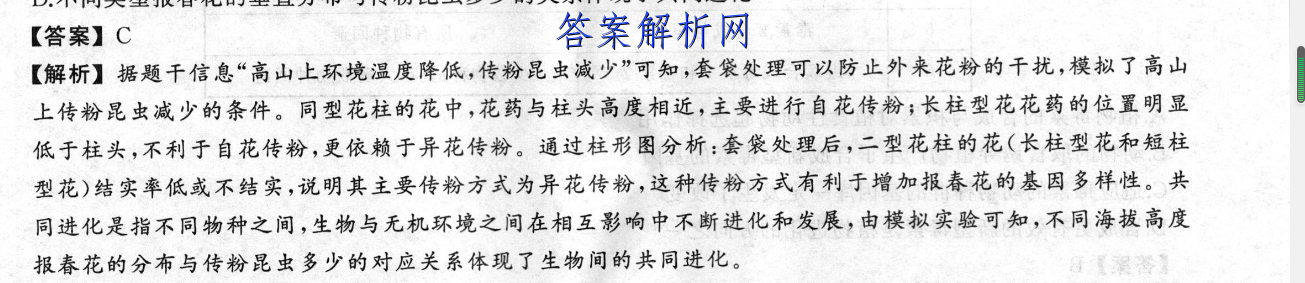 D.不同类型报春花的垂直分布与传粉昆虫多少的关系体现了共同进化
【答案】C
答案解析网
【解析】据题干信息“高山上环境温度降低,传粉昆虫减少”可知,套袋处理可以防止外来花粉的干扰,模拟了高山
上传粉昆虫减少的条件。同型花柱的花中,花药与柱头高度相近,主要进行自花传粉;长柱型花花药的位置明显
低于柱头,不利于自花传粉,更依赖于异花传粉。通过柱形图分析:套袋处理后,二型花柱的花(长柱型花和短柱
型花)结实率低或不结实,说明其主要传粉方式为异花传粉,这种传粉方式有利于增加报春花的基因多样性。共
同进化是指不同物种之间,生物与无机环境之间在相互影响中不断进化和发展,由模拟实验可知,不同海拔高度
报春花的分布与传粉昆虫多少的对应关系体现了生物间的共同进化。